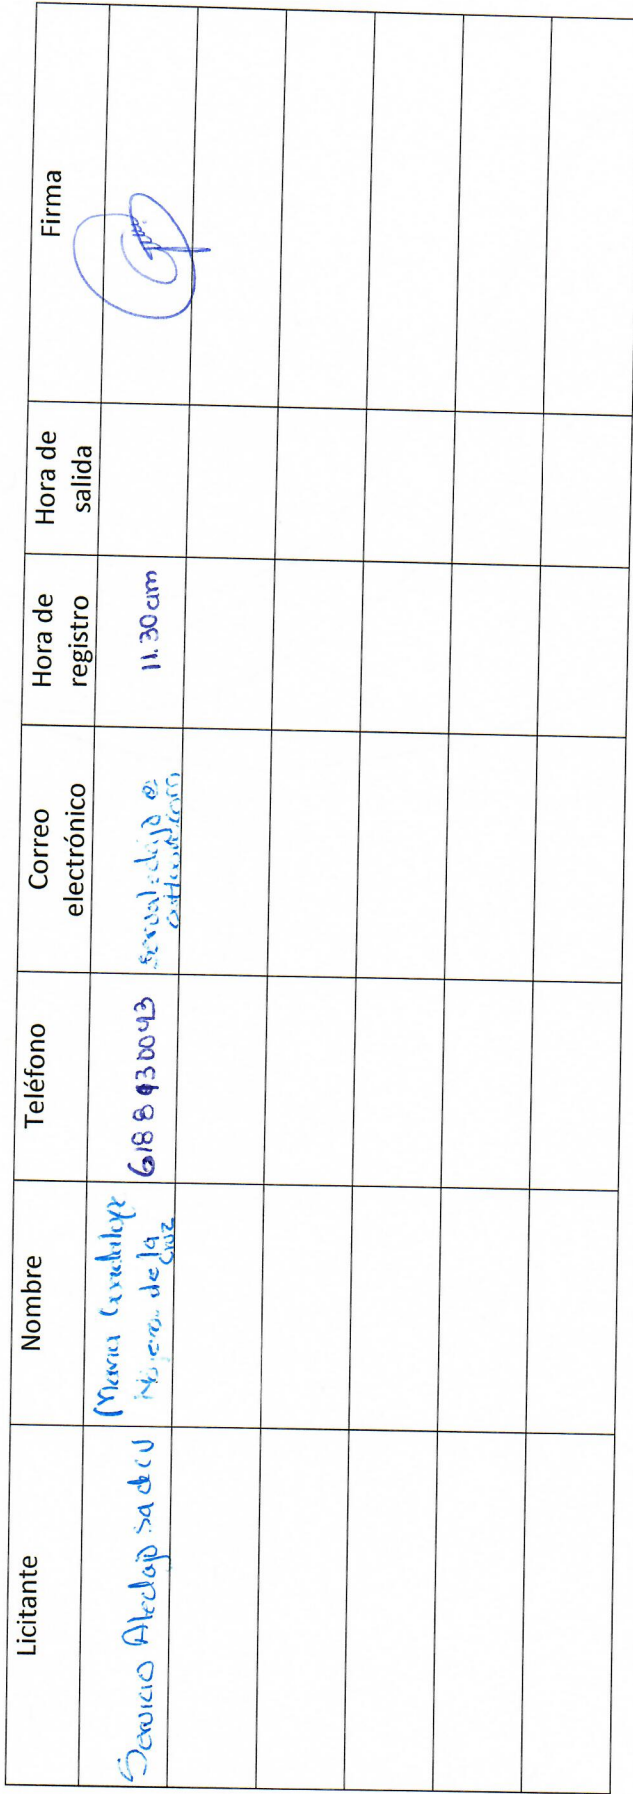 Licitante
Nombre
Teléfono
Correo
electrónico
Hora de
registro
Hora de
salida
Firma
Servicio Aledajo sa de cv
Maria Guadalupe
de la
Cruz
618 8 930043
11:30 am